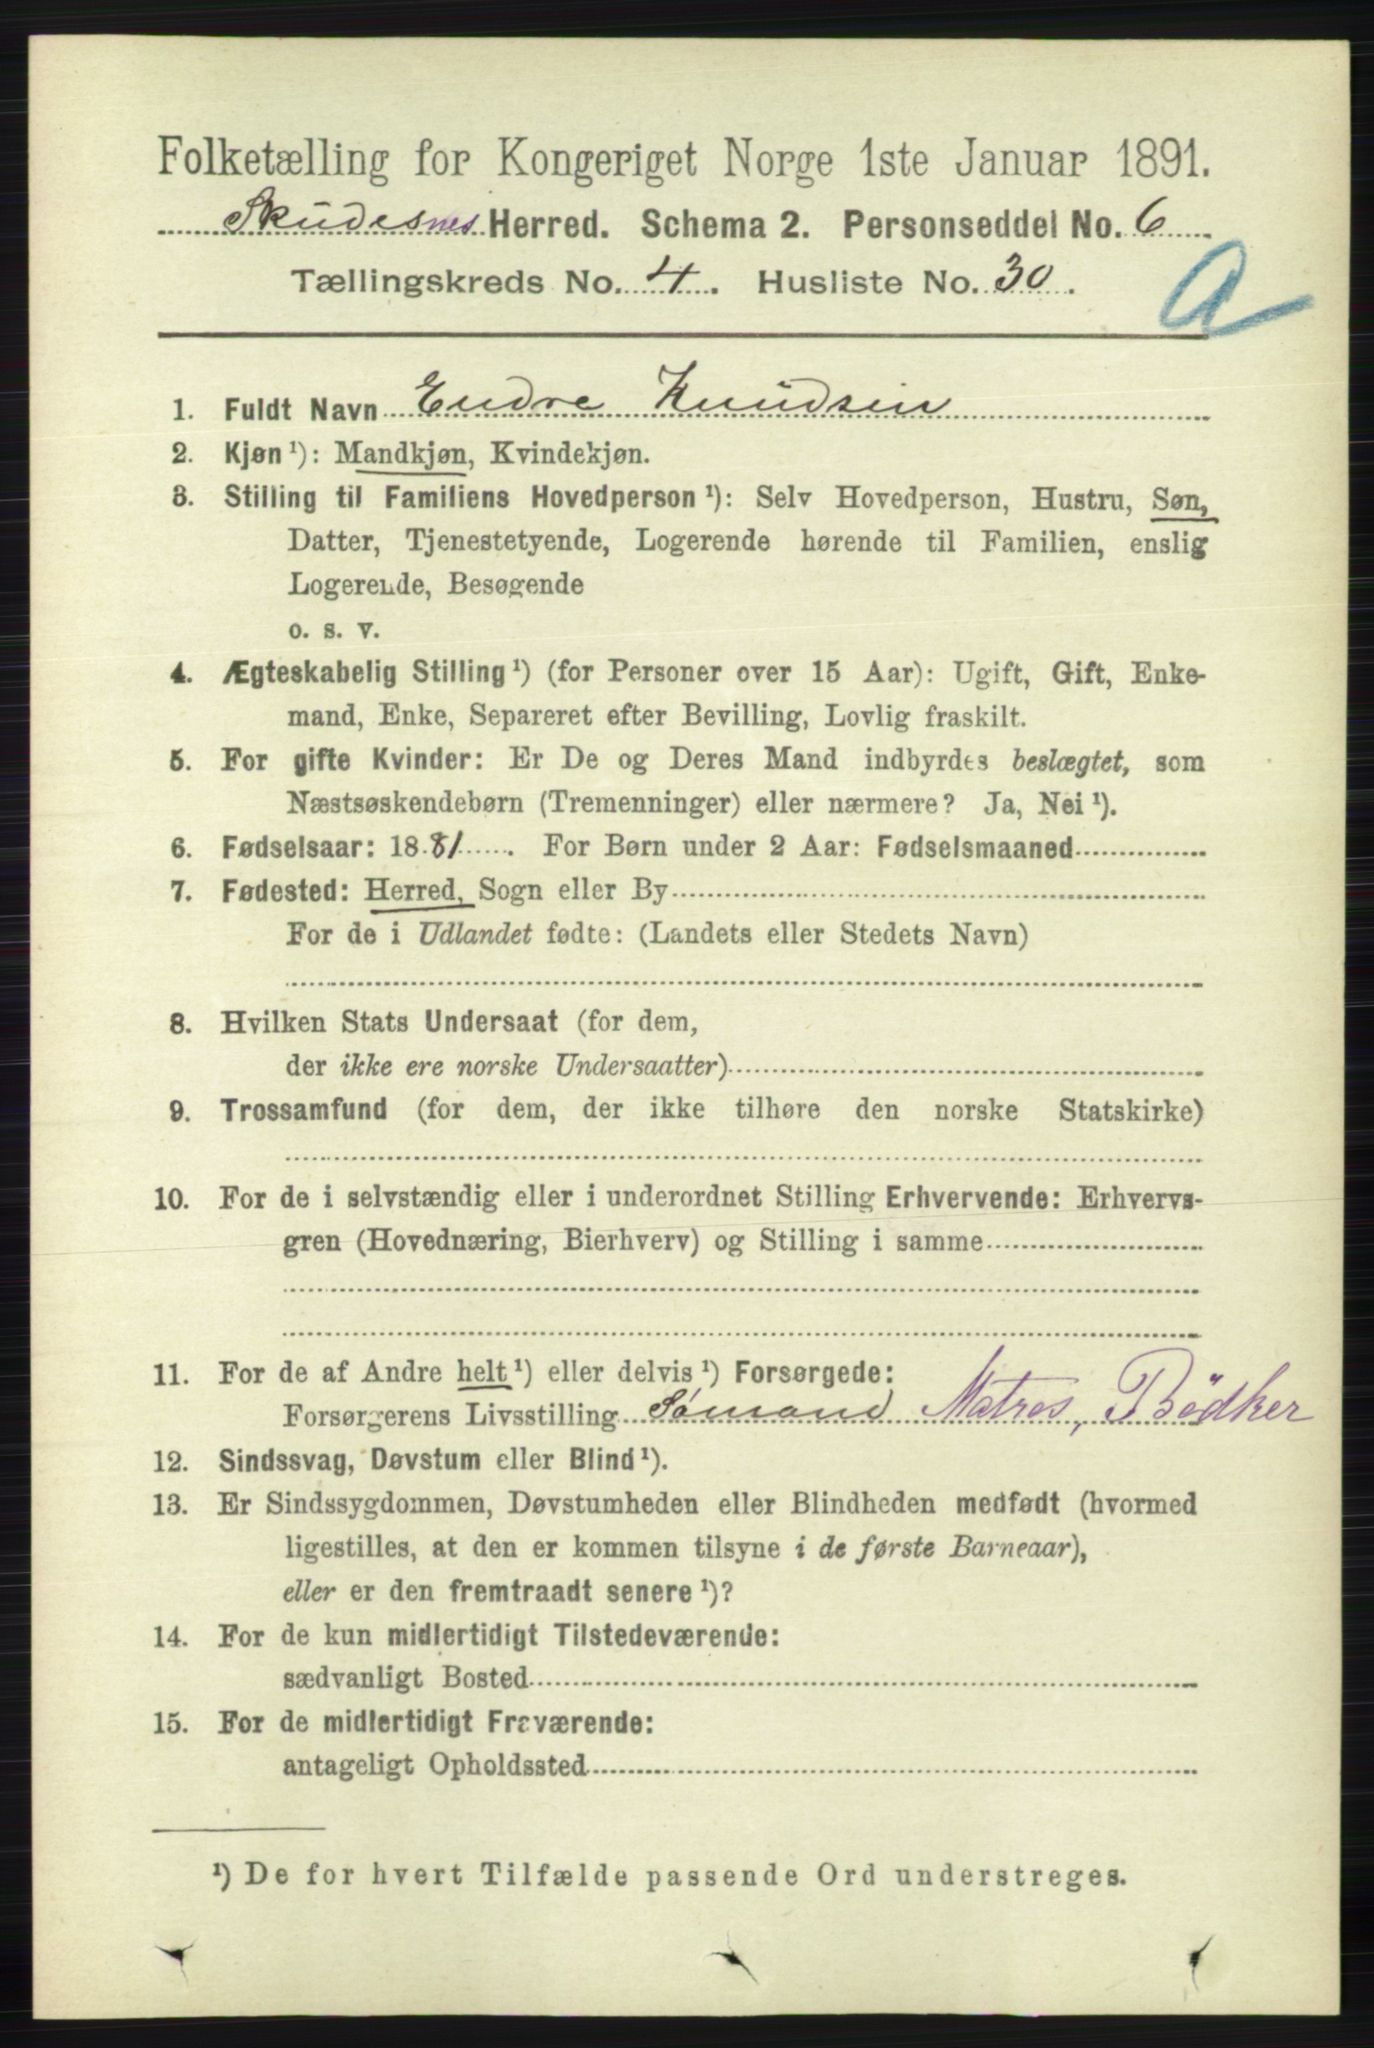 Folketælling for Kongeriget Norge 1ste Januar 1891.
Skudesnes Herred. Schema 2. Personseddel No. 6
Tællingskreds No. 4. Husliste No. 30.
A
1. Fuldt Navn Endre Knudsen
2. Kjøn ¹): Mandkjøn, Kvindekjøn.
3. Stilling til Familiens Hovedperson ¹): Selv Hovedperson, Hustru, Søn,
Datter, Tjenestetyende, Logerende hørende til Familien, enslig
Logerende, Besøgende
o. s. v.
4. Ægteskabelig Stilling ¹) (for Personer over 15 Aar): Ugift, Gift, Enke-
mand, Enke, Separeret efter Bevilling, Lovlig fraskilt.
5. For gifte Kvinder: Er De og Deres Mand indbyrdes beslægtet, som
Næstsøskendebørn (Tremenninger) eller nærmere? Ja, Nei ¹).
6. Fødselsaar: 1881. For Børn under 2 Aar: Fødselsmaaned
7. Fødested: Herred, Sogn eller By
For de i Udlandet fødte: (Landets eller Stedets Navn)
8. Hvilken Stats Undersaat (for dem,
der ikke ere norske Undersaatter)
9. Trossamfund (for dem, der ikke tilhøre den norske Statskirke)
10. For de i selvstændig eller i underordnet Stilling Erhvervende: Erhvervs-
gren (Hovednæring, Bierhverv) og Stilling i samme
11. For de af Andre helt ¹) eller delvis ¹) Forsørgede:
Forsørgerens Livsstilling Sømand Matros, Bödker
12. Sindssvag, Døvstum eller Blind ¹).
13. Er Sindssygdommen, Døvstumheden eller Blindheden medfødt (hvormed
ligestilles, at den er kommen tilsyne i de første Barneaar),
eller er den fremtraadt senere ¹)?
14. For de kun midlertidigt Tilstedeværende:
sædvanligt Bosted
15. For de midlertidigt Fraværende:
antageligt Opholdssted
¹) De for hvert Tilfælde passende Ord understreges.